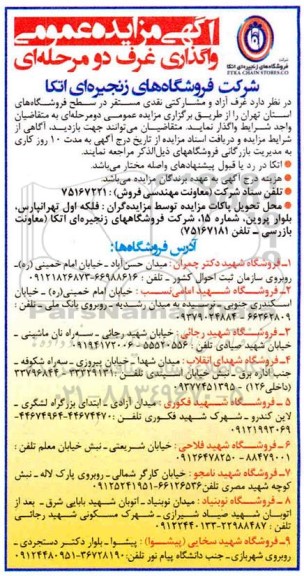 شرکت
فروشگاه‌های زنجیره‌ای اتکا
ETKA CHAIN STORES.CO
آگهی مزایده عمومی
واگذاری غرف دو مرحله‌ای
شرکت فروشگاه‌های زنجیره‌ای اتکا
در نظر دارد غرف آزاد و مشارکتی نقدی مستقر در سطح فروشگاه‌های
استان تهران را از طریق برگزاری مزایده عمومی دومرحله‌ای به متقاضیان
واجد شرایط واگذار نماید. متقاضیان می‌توانند جهت بازدید، آگاهی از
شرایط مزایده و دریافت اسناد مزایده از تاریخ درج آگهی به مدت ۱۰ روز کاری
به مدیریت بازرگانی فروشگاههای ذیل‌الذکر مراجعه نمایند.
اتکا در رد یا قبول پیشنهادهای واصله مختار می‌باشد.
هزینه درج آگهی به عهده برندگان مزایده می‌باشد.
تلفن ستاد شرکت (معاونت مهندسی فروش): ۷۵۱۶۷۲۲۱
محل تحویل پاکات مزایده توسط مزایده‌گران: فلکه اول تهرانپارس،
بلوار پروین، شماره ۱۵، شرکت فروشگاههای زنجیره‌ای اتکا (معاونت
بازرسی ـ تلفن ۷۵۱۶۷۱۸۱)
آدرس فروشگاه‌ها:
۱ـ فروشگاه شهید دکتر چمران: میدان حسن‌آباد ـ خیابان امام خمینی (ره)ـ
روبروی سازمان ثبت احوال کشور ـ تلفن:
۲ـ فروشگاه شهید امانی‌نسب: خیابان امام خمینی(ره) ـ خیابان
اسکندری جنوبی ـ نرسیده به میدان رشدیه ـ روبروی بانک ملی ـ تلفن:
۳ـ فروشگاه شهید رجائی: خیابان شهید رجائی ـ سه‌راه نان ماشینی ـ
خیابان شهید صیادی تلفن:
۴ـ فروشگاه شهدای انقلاب: میدان شهدا ـ خیابان پیروزی ـ سه‌راه شکوفه ـ
جنب اداره برق ـ نبش خیابان اسبندی تلفن:
(داخلی۱۲۶) ـ
۵ ـ فروشگاه شهید فکوری: میدان آزادی ـ ابتدای بزرگراه لشگری ـ
لاین کندرو ـ شهرک شهید فکوری تلفن:
۶ ـ فروشگاه شهید فلاحی: خیابان شریعتی ـ نبش خیابان معلم تلفن:
۷ـ فروشگاه شهید نامجو: خیابان کارگر شمالی ـ روبروی پارک لاله ـ نبش
کوچه شهید مصری تلفن
۸ ـ فروشگاه نوبنیاد: میدان نوبنیاد ـ اتوبان شهید بابایی شرق ـ بعد از
اتوبان شهید صیاد شیرازی ـ شهرک مسکونی شهید رجائی
تلفن:
۹ـ فروشگاه شهید سخایی (پیشوا): پیشوا ـ بلوار دکتر دستجردی ـ
روبروی شهربازی ـ جنب دانشگاه پیام نور تلفن: